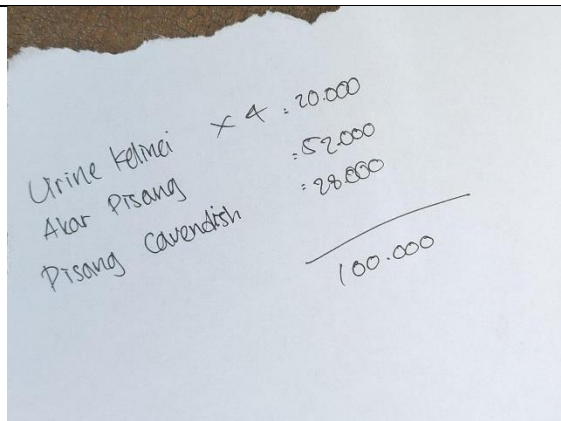 Urine Kelinci x 4 : 20.000
Akar Pisang : 52.000
Pisang Cavendish : 28.000
100.000